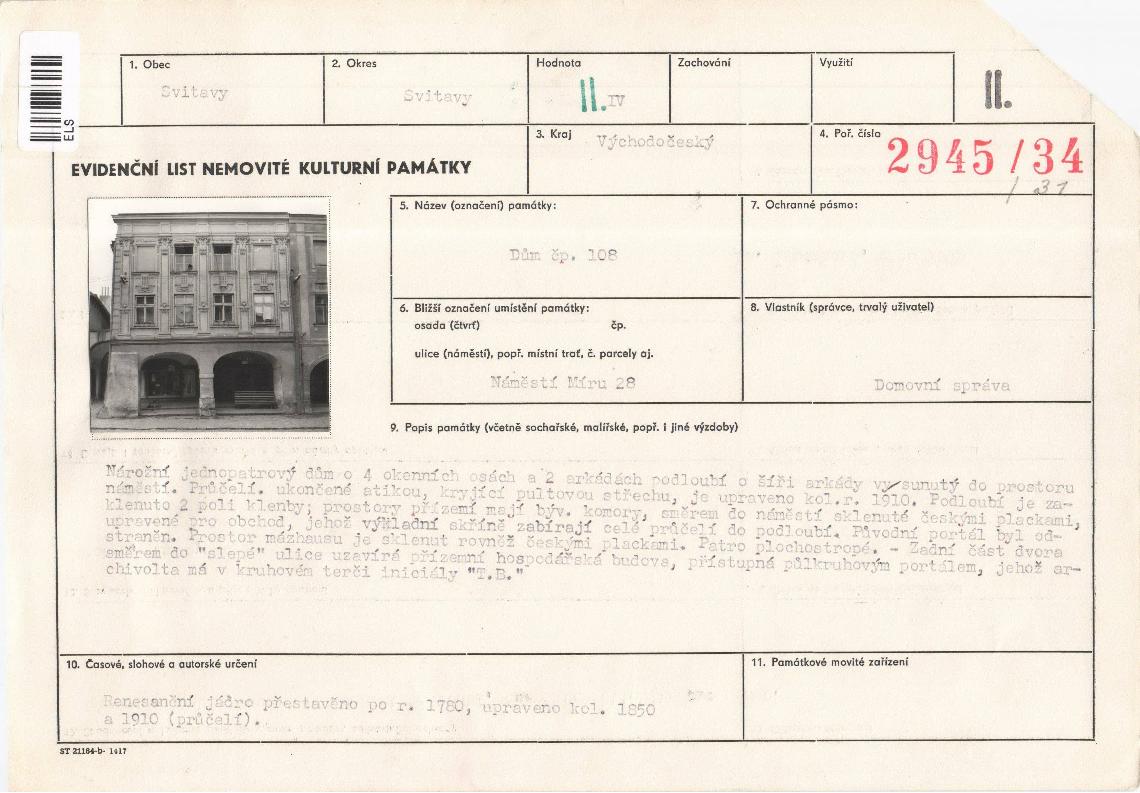 ELS
1. Obec
Svitavy
2. Okres
Svitavy
Hodnota
II. IV
Zachování
Využití
II.
EVIDENČNÍ LIST NEMOVITÉ KULTURNÍ PAMÁTKY
3. Kraj Východočeský
4. Poř. číslo
2945/34
/ 31
5. Název (označení) památky:
Dům čp. 108
7. Ochranné pásmo:
6. Bližší označení umístění památky:
osada (čtvrť) čp.
ulice (náměstí), popř. místní trať, č. parcely aj.
Náměstí Míru 28
8. Vlastník (správce, trvalý uživatel)
Domovní správa
9. Popis památky (včetně sochařské, malířské, popř. i jiné výzdoby)
Nárožní jednopatrový dům o 4 okenních osách a 2 arkádách podloubí o šíři arkády vysunutý do prostoru
náměstí. Průčelí. ukončené atikou, kryjící pultovou střechu, je upraveno kol.r. 1910. Podloubí je za-
klenuto 2 poli klenby; prostory přízemí mají býv. komory, směrem do náměstí sklenuté českými plackami,
upravené pro obchod, jehož výkladní skříně zabírají celé průčelí do podloubí. Původní portál byl od-
straněn. Prostor mázhausu je sklenut rovněž českými plackami. Patro plochostropé. - Zadní část dvora
směrem do "slepé" ulice uzavírá přízemní hospodářská budova, přístupná půlkruhovým portálem, jehož ar-
chivolta má v kruhovém terči iniciály "T.B."
10. Časové, slohové a autorské určení
Renesanční jádro přestavěno po r. 1780, upraveno kol. 1850
a 1910 (průčelí).
11. Památkové movité zařízení
ST 21184-b- 1417